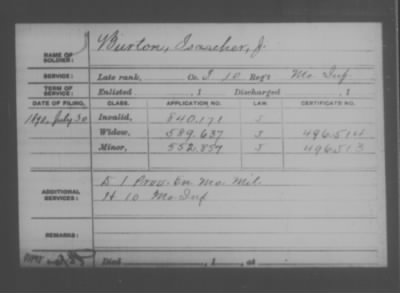 NAME OF SOLDIER: Burton, Isascher, J.
SERVICE: Late rank, Co. I 10 Reg't Mo Inf
TERM OF SERVICE: Enlisted , 1 Discharged , 1
DATE OF FILING. CLASS. APPLICATION NO. LAW. CERTIFICATE NO.
1890, July 30 Invalid, 840.171 J
Widow, 589.637 J 496.514
Minor, 552.857 496513
ADDITIONAL SERVICES:
D 1 Prov. En. Mo. Mil.
H 10 Mo Inf
REMARKS:
Died , 1 , at